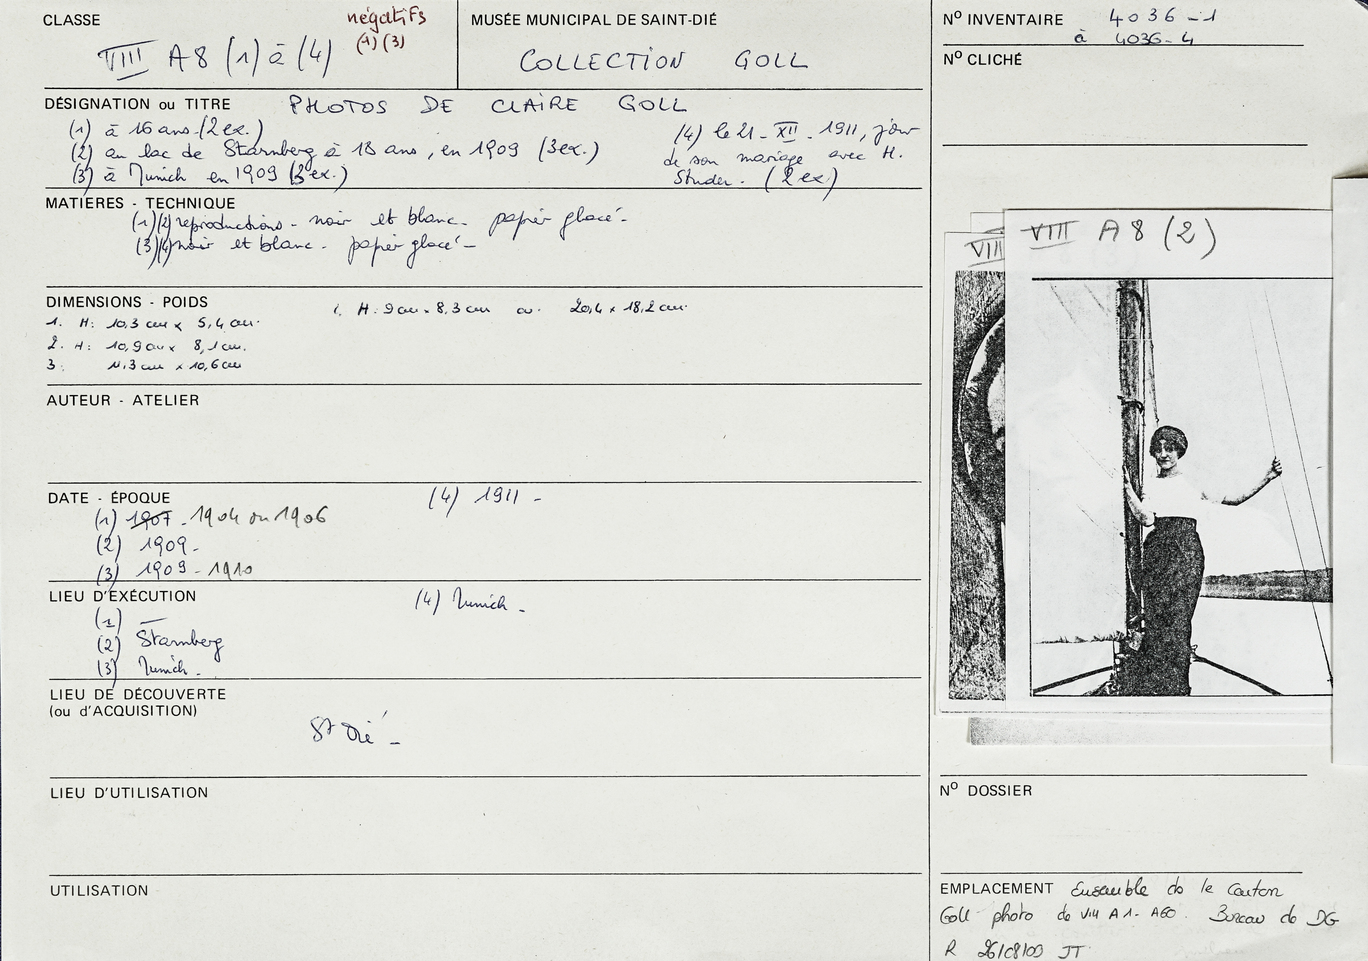 CLASSE
négatifs
(1) (3)
VIII A8 (1) à (4)
MUSÉE MUNICIPAL DE SAINT-DIÉ
COLLECTION GOLL
Nº INVENTAIRE 4036-1
à 4036-4
Nº CLICHÉ
DÉSIGNATION ou TITRE PHOTOS DE CLAIRE GOLL
(1) à 16 ans. (2 ex.)
(2) au lac de Starnberg à 18 ans, en 1909 (3 ex.)
(3) à Munich en 1909 (3 ex.)
(4) le 21 - XII - 1911, jour
de son mariage avec H.
Studer. (2 ex)
MATIERES - TECHNIQUE
(1)(2) reproductions - noir et blanc - papier glacé -
(3)(4) noir et blanc - papier glacé -
DIMENSIONS - POIDS
1. H: 10,3 cm x 5,4 cm.
2. H: 10,9 cm x 8,1 cm.
3: 11,3 cm x 10,6 cm
H: 9 cm x 8,3 cm ou 20,4 x 18,2 cm
AUTEUR - ATELIER
DATE - ÉPOQUE
(1) 1907 - 1904 ou 1906
(2) 1909 -
(3) 1909 - 1910
(4) 1911 -
LIEU D'EXÉCUTION
(1) —
(2) Starnberg
(3) Munich -
(4) Munich -
LIEU DE DÉCOUVERTE
(ou d'ACQUISITION)
St Dié -
LIEU D'UTILISATION
UTILISATION
VIII
VIII A8 (2)
Nº DOSSIER
EMPLACEMENT Ensemble de le carton
Goll photo de VIII A1 - A60. Bureau de DG
R 26/08/03 JT